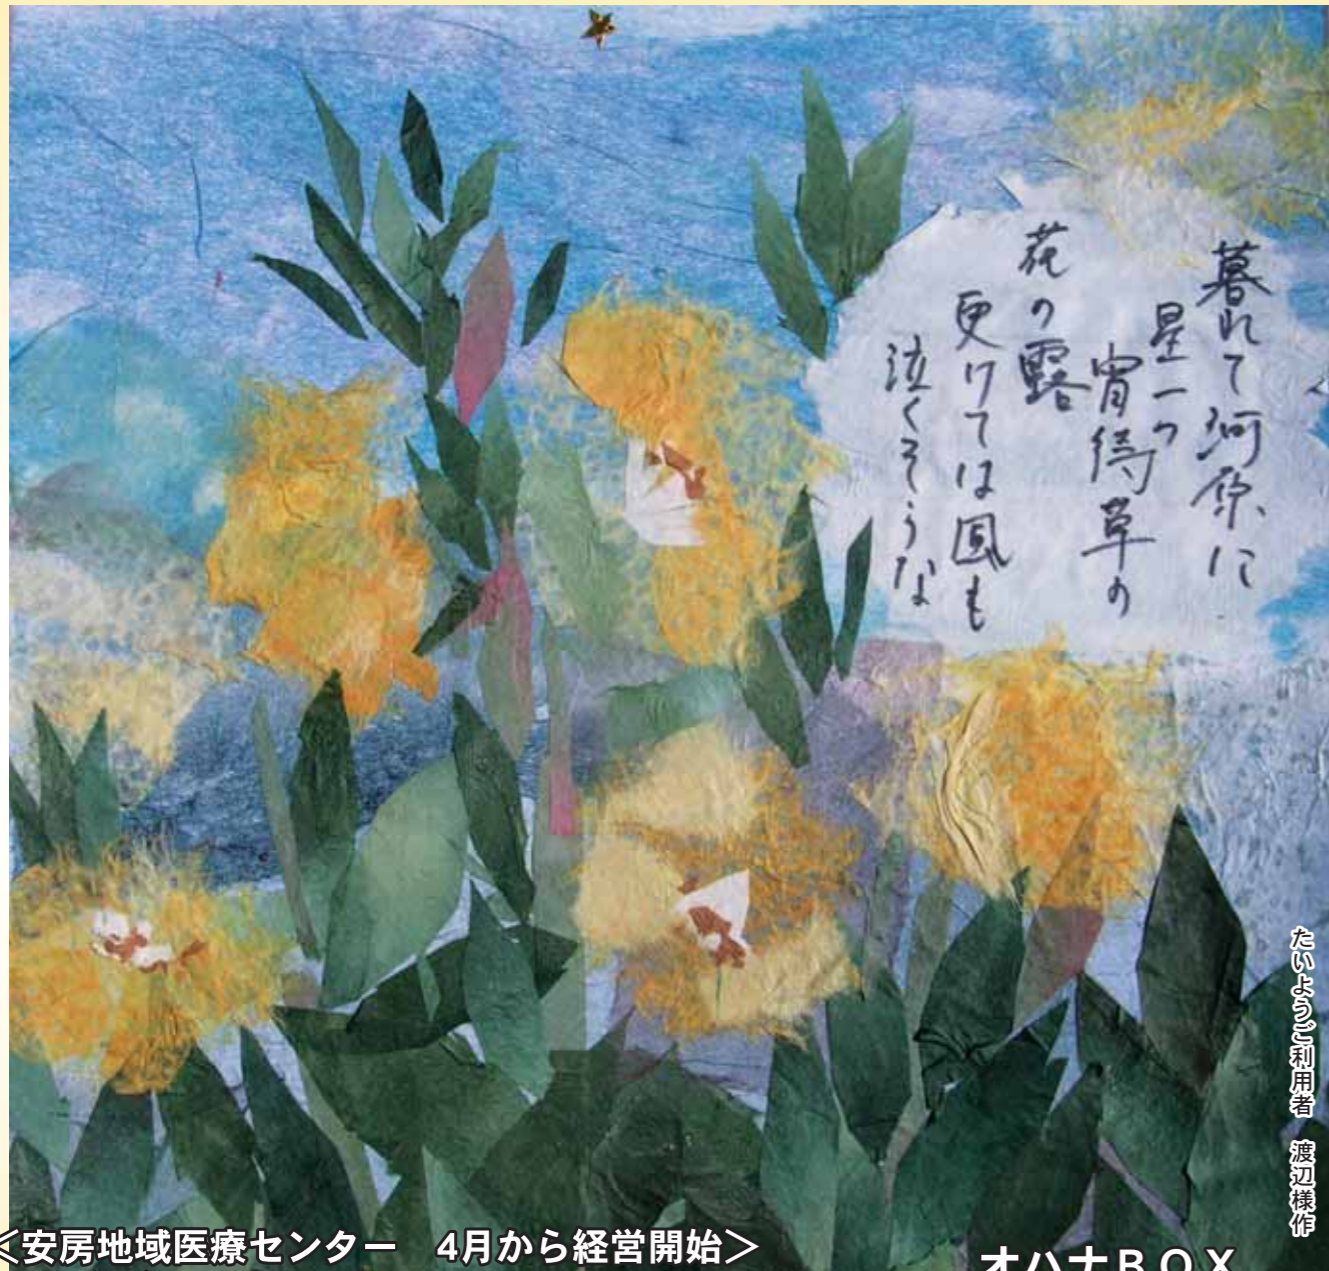 暮れて河原に
星一つ
宵待草の
花の露
更けては風も
泣くそうな
たいようご利用者　渡辺様作
＜安房地域医療センター　4月から経営開始＞
オハナＢＯＸ